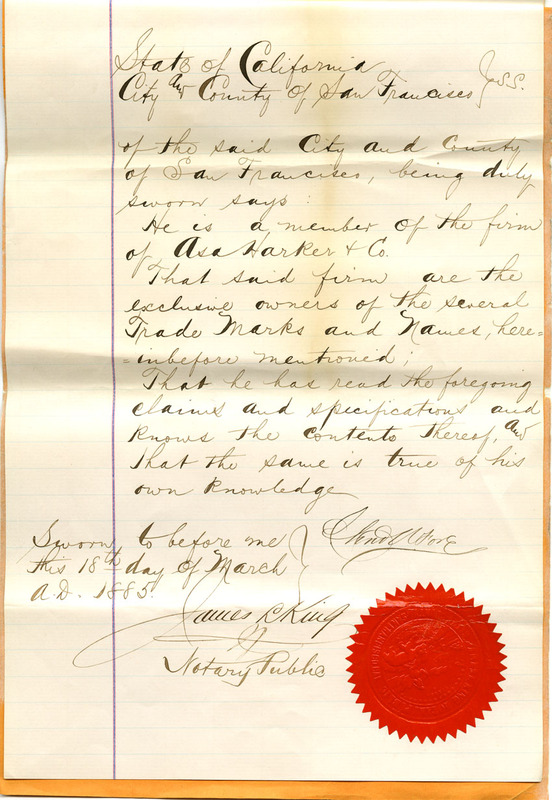 State of California } SS.
City and County of San Francisco
of the said City and County
of San Francisco, being duly
sworn says:
He is a member of the firm
of Asa Harker & Co.
That said firm are the
exclusive owners of the several
Trade Marks and Names, here=
=inbefore mentioned;
That he has read the foregoing
claims and specifications and
knows the contents thereof, and
that the same is true of his
own knowledge
Sworn to before me
this 18th day of March
A.D. 1885.
James L King
Notary Public